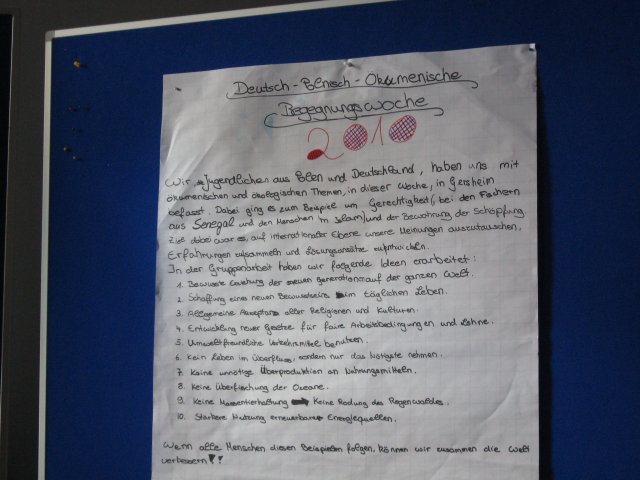 Deutsch - Polnisch - Ökumenische
Begegnungswoche
2010
Wir, Jugendlichen aus Polen und Deutschland, haben uns mit
ökumenischen und ökologischen Themen, in dieser Woche, in Gersheim
befasst. Dabei ging es zum Beispiel um Gerechtigkeit, bei den Fischern
aus Senegal und den Menschen im Islam, und der Bewahrung der Schöpfung.
Ziel dabei war es, auf internationaler Ebene unsere Meinungen auszutauschen,
Erfahrungen zusammeln und Lösungsansätze zu entwickeln.
In der Gruppenarbeit haben wir folgende Ideen erarbeitet:
1. Bewusste Erziehung der neuen Generation auf der ganzen Welt.
2. Schaffung eines neuen Bewusstseins im täglichen Leben.
3. Allgemeine Akzeptanz aller Religionen und Kulturen.
4. Entwicklung neuer Gesetze für faire Arbeitsbedingungen und Löhne.
5. Umweltfreundliche Verkehrsmittel benutzen.
6. Kein Leben im Überfluss, sondern nur das Nötigste nehmen.
7. Keine unnötige Überproduktion an Nahrungsmitteln.
8. Keine Überfischung der Ozeane.
9. Keine Massentierhaltung → Keine Rodung des Regenwaldes.
10. Stärkere Nutzung erneuerbare Energiequellen.
Wenn alle Menschen diesen Beispielen folgen, können wir zusammen die Welt
verbessern!!